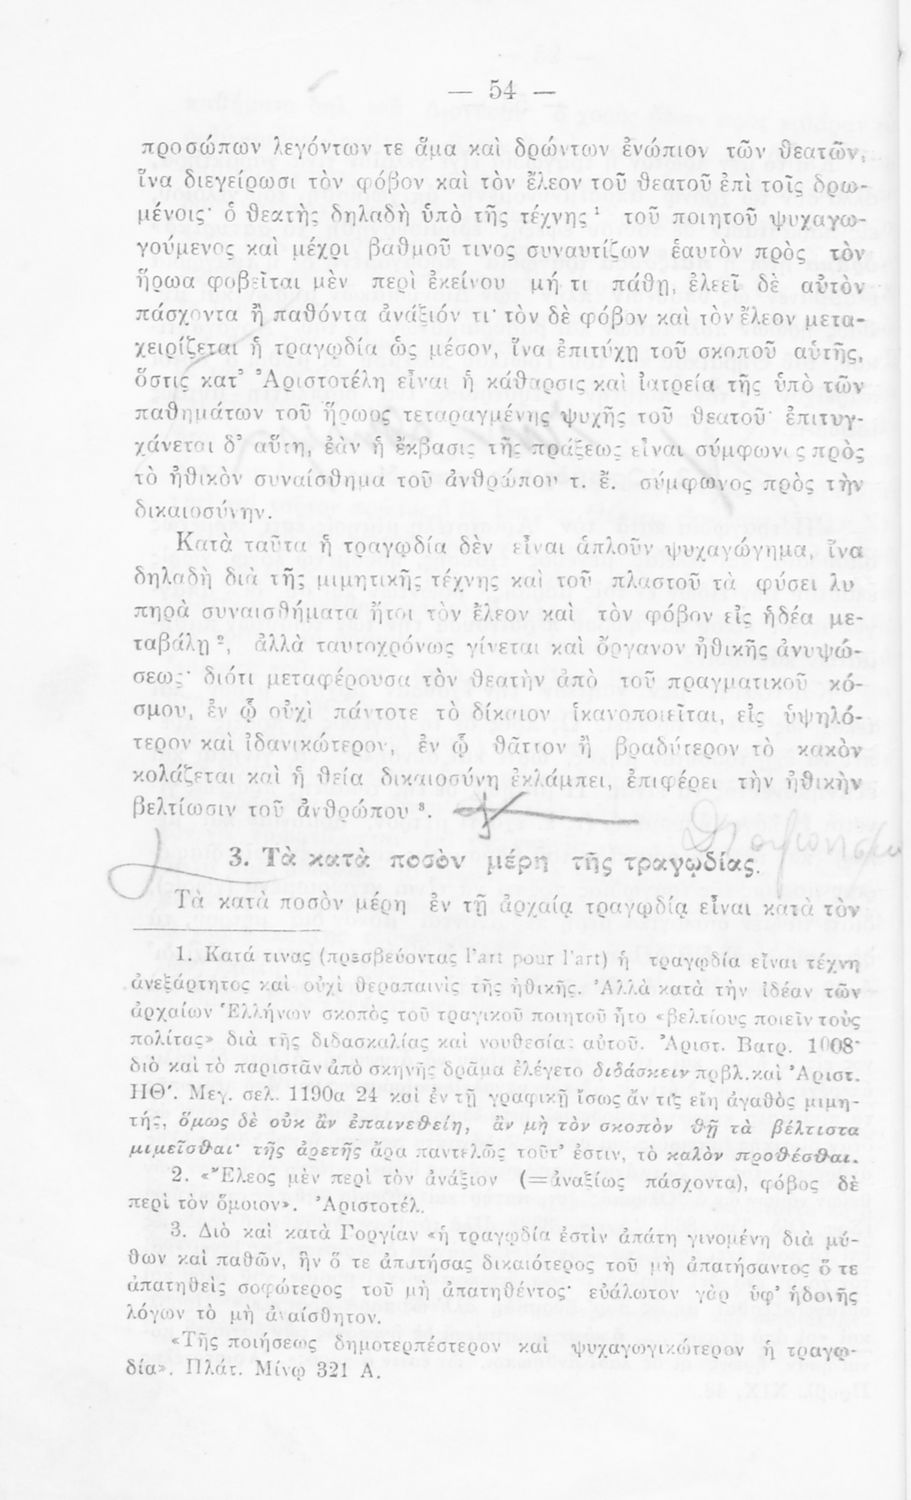 — 54 —
προσώπων λεγόντων τε ἅμα καὶ δρώντων ἐνώπιον τῶν θεατῶν,
ἵνα διεγείρωσι τὸν φόβον καὶ τὸν ἔλεον τοῦ θεατοῦ ἐπὶ τοῖς δρω-
μένοις· ὁ θεατὴς δηλαδὴ ὑπὸ τῆς τέχνης ¹ τοῦ ποιητοῦ ψυχαγω-
γούμενος καὶ μέχρι βαθμοῦ τινος συναυτίζων ἑαυτὸν πρὸς τὸν
ἥρωα φοβεῖται μὲν περὶ ἐκείνου μή τι πάθῃ, ἐλεεῖ δὲ αὐτὸν
πάσχοντα ἢ παθόντα ἀνάξιόν τι· τὸν δὲ φόβον καὶ τὸν ἔλεον μετα-
χειρίζεται ἡ τραγῳδία ὡς μέσον, ἵνα ἐπιτύχῃ τοῦ σκοποῦ αὑτῆς,
ὅστις κατ' Ἀριστοτέλη εἶναι ἡ κάθαρσις καὶ ἰατρεία τῆς ὑπὸ τῶν
παθημάτων τοῦ ἥρωος τεταραγμένης ψυχῆς τοῦ θεατοῦ· ἐπιτυγ-
χάνεται δ' αὕτη, ἐὰν ἡ ἔκβασις τῆς πράξεως εἶναι σύμφωνος πρὸς
τὸ ἠθικὸν συναίσθημα τοῦ ἀνθρώπου τ. ἔ. σύμφωνος πρὸς τὴν
δικαιοσύνην.
Κατὰ ταῦτα ἡ τραγῳδία δὲν εἶναι ἁπλοῦν ψυχαγώγημα, ἵνα
δηλαδὴ διὰ τῆς μιμητικῆς τέχνης καὶ τοῦ πλαστοῦ τὰ φύσει λυ
πηρὰ συναισθήματα ἤτοι τὸν ἔλεον καὶ τὸν φόβον εἰς ἡδέα με-
ταβάλῃ ², ἀλλὰ ταυτοχρόνως γίνεται καὶ ὄργανον ἠθικῆς ἀνυψώ-
σεως· διότι μεταφέρουσα τὸν θεατὴν ἀπὸ τοῦ πραγματικοῦ κό-
σμου, ἐν ᾧ οὐχὶ πάντοτε τὸ δίκαιον ἱκανοποιεῖται, εἰς ὑψηλό-
τερον καὶ ἰδανικώτερον, ἐν ᾧ θᾶττον ἢ βραδύτερον τὸ κακὸν
κολάζεται καὶ ἡ θεία δικαιοσύνη ἐκλάμπει, ἐπιφέρει τὴν ἠθικὴν
βελτίωσιν τοῦ ἀνθρώπου ³.
3. Τὰ κατὰ ποσὸν μέρη τῆς τραγῳδίας.
Τὰ κατὰ ποσὸν μέρη ἐν τῇ ἀρχαίᾳ τραγῳδίᾳ εἶναι κατὰ τὸν
1. Κατά τινας (πρεσβεύοντας l'art pour l'art) ἡ τραγῳδία εἶναι τέχνη
ἀνεξάρτητος καὶ οὐχὶ θεραπαινὶς τῆς ἠθικῆς. Ἀλλὰ κατὰ τὴν ἰδέαν τῶν
ἀρχαίων Ἑλλήνων σκοπὸς τοῦ τραγικοῦ ποιητοῦ ἦτο «βελτίους ποιεῖν τοὺς
πολίτας» διὰ τῆς διδασκαλίας καὶ νουθεσίας αὐτοῦ. Ἀριστ. Βατρ. 1008·
διὸ καὶ τὸ παριστᾶν ἀπὸ σκηνῆς δρᾶμα ἐλέγετο διδάσκειν πρβλ. καὶ Ἀριστ.
ΗΘ'. Μεγ. σελ. 1190α 24 καὶ ἐν τῇ γραφικῇ ἴσως ἄν τις εἴη ἀγαθὸς μιμη-
τής, ὅμως δὲ οὐκ ἂν ἐπαινεθείη, ἂν μὴ τὸν σκοπὸν θῇ τὰ βέλτιστα
μιμεῖσθαι· τῆς ἀρετῆς ἄρα παντελῶς τοῦτ' ἐστιν, τὸ καλὸν προθέσθαι.
2. «Ἔλεος μὲν περὶ τὸν ἀνάξιον (=ἀναξίως πάσχοντα), φόβος δὲ
περὶ τὸν ὅμοιον». Ἀριστοτέλ.
3. Διὸ καὶ κατὰ Γοργίαν «ἡ τραγῳδία ἐστὶν ἀπάτη γινομένη διὰ μύ-
θων καὶ παθῶν, ἣν ὅ τε ἀπατήσας δικαιότερος τοῦ μὴ ἀπατήσαντος ὅ τε
ἀπατηθεὶς σοφώτερος τοῦ μὴ ἀπατηθέντος· εὐάλωτον γὰρ ὑφ' ἡδονῆς
λόγων τὸ μὴ ἀναίσθητον.
«Τῆς ποιήσεως δημοτερπέστερον καὶ ψυχαγωγικώτερον ἡ τραγῳ-
δία». Πλάτ. Μίνῳ 321 Α.